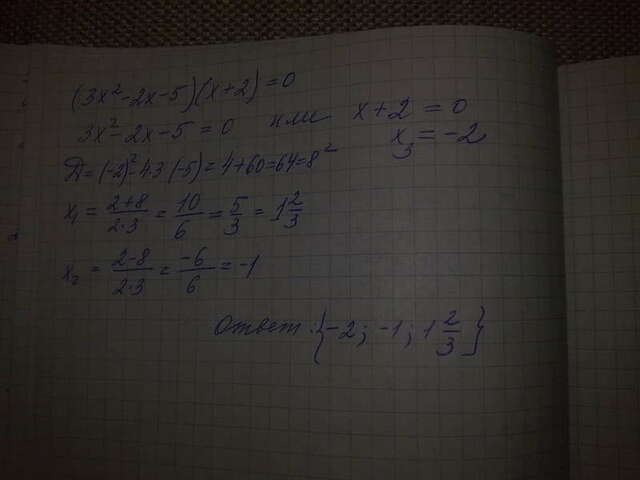 (3x²-2x-5)(x+2)=0
3x²-2x-5=0 или x+2=0
x₃=-2
Д=(-2)²-4·3·(-5)=4+60=64=8²
x₁ = (2+8)/(2·3) = 10/6 = 5/3 = 1 2/3
x₂ = (2-8)/(2·3) = -6/6 = -1
Ответ: {-2; -1; 1 2/3}